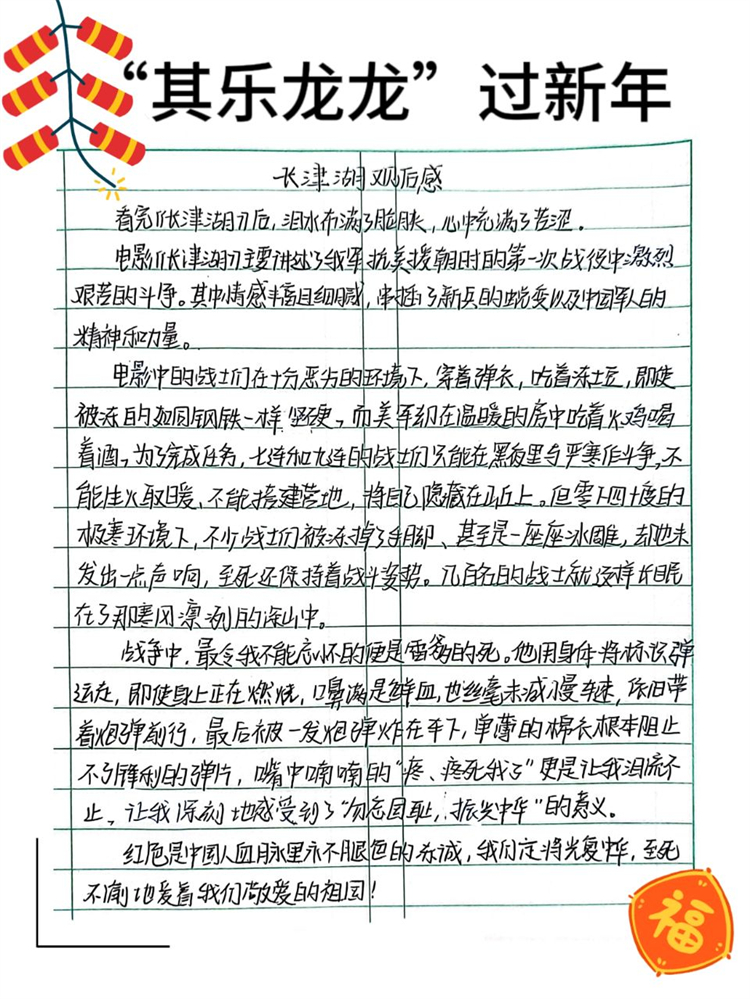 “其乐龙龙”过新年
长津湖观后感
看完《长津湖》后，泪水布满了脸颊，心中充满了苦涩。
电影《长津湖》主要讲述了我军抗美援朝时的第一次战役中激烈
艰苦的斗争。其中情感丰富且细腻，串插了新兵的蜕变以及中国军人的
精神和力量。
电影中的战士们在十分恶劣的环境下，穿着弹衣，吃着冻土豆，即使
被冻的如同钢铁一样坚硬，而美军却在温暖的房中吃着火鸡喝
着酒，为了完成任务，七连和九连的战士们只能在黑夜里与严寒作斗争，不
能生火取暖、不能搭建营地，将自己隐藏在山丘上。但零下四十度的
极寒环境下，不少战士们被冻掉了手脚、甚至是一座座冰雕，却也未
发出一点声响，至死还保持着战斗姿势。几百名的战士就这样长眠
在了那寒风凛冽的深山中。
战争中，最令我不能忘怀的便是雷爹的死。他用身体将标识弹
运走，即使身上正在燃烧，口鼻满是鲜血，也丝毫未减慢车速，依旧带
着炮弹前行，最后被一发炮弹炸在车下，单薄的棉衣根本阻止
不了锋利的弹片，嘴中喃喃的“疼、疼死我了”更是让我泪流不
止，让我深刻地感受到了“勿忘国耻，振兴中华”的意义。
红色是中国人血脉里永不腿色的赤诚，我们定将光复中华，至死
不渝地爱着我们敬爱的祖国！
福